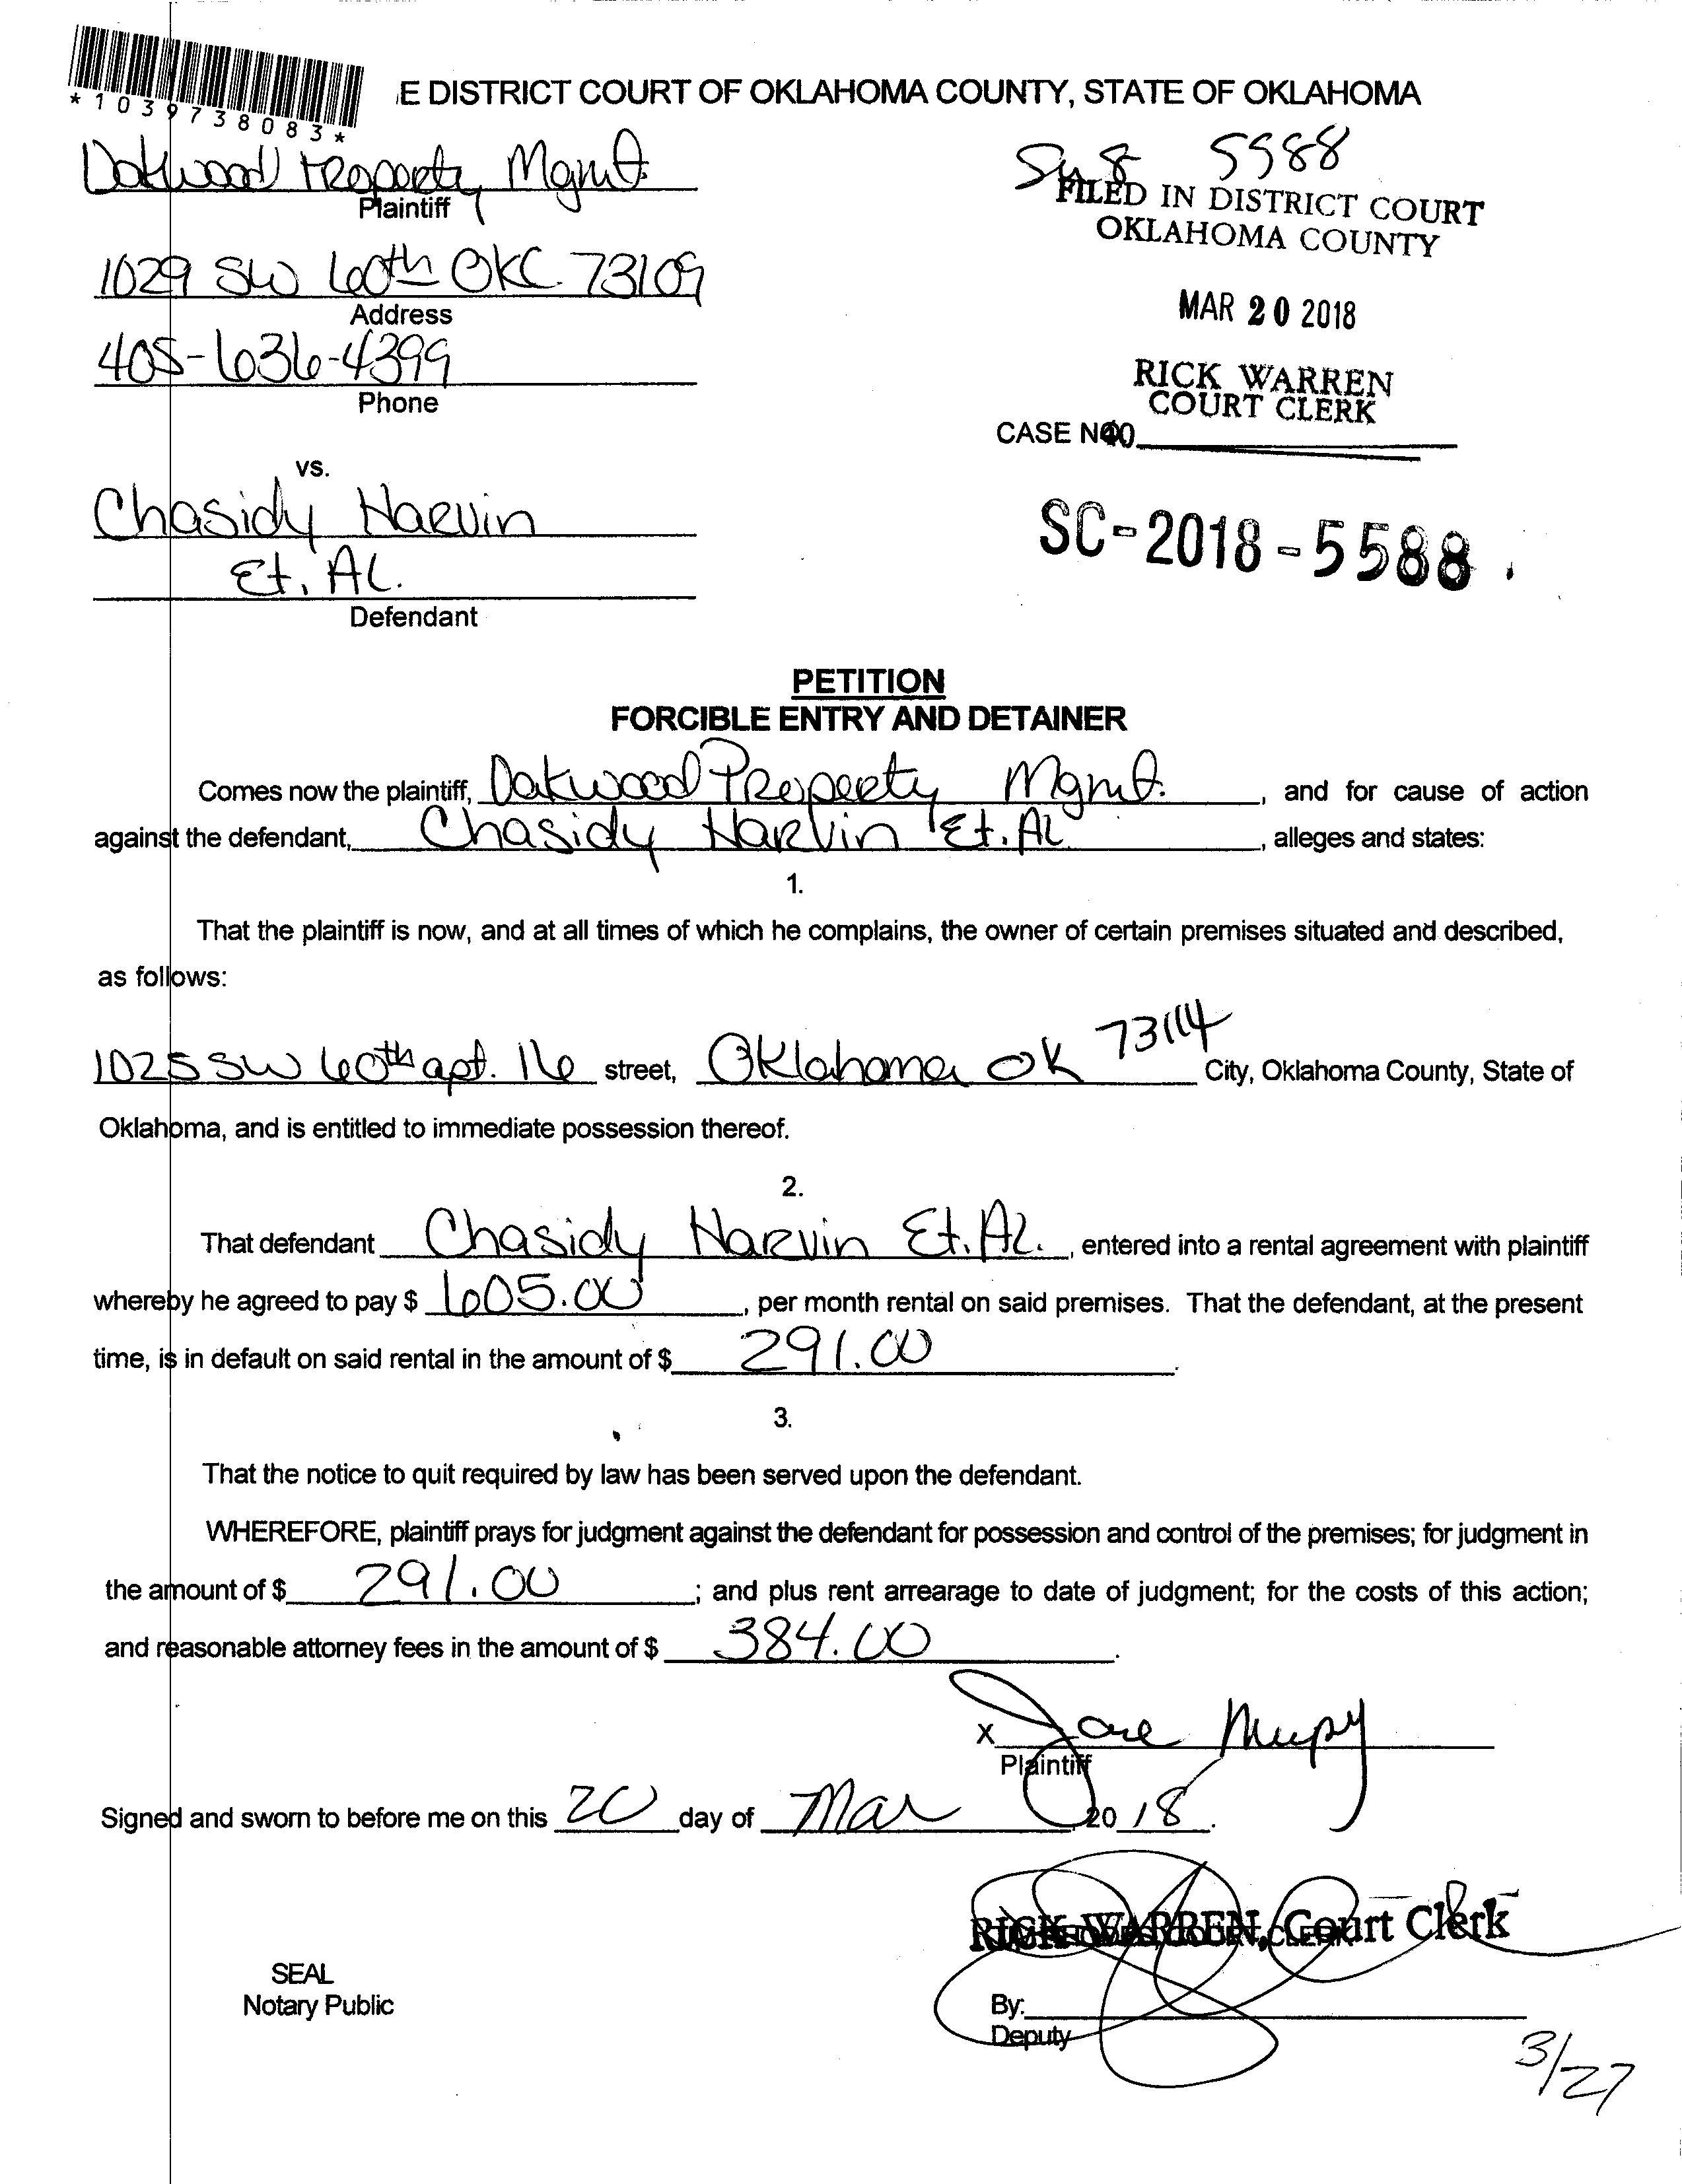 *1039738083*
E DISTRICT COURT OF OKLAHOMA COUNTY, STATE OF OKLAHOMA
Oakwood Property Mgmt.
Plaintiff
5588
FILED IN DISTRICT COURT
OKLAHOMA COUNTY
1029 SW 60th OKC 73109
Address
MAR 20 2018
405-636-4399
Phone
RICK WARREN
COURT CLERK
CASE NO.
vs.
Chasidy Harvin
Et. AL.
Defendant
SC-2018-5588
PETITION
FORCIBLE ENTRY AND DETAINER
Comes now the plaintiff, Oakwood Property Mgmt. , and for cause of action
against the defendant, Chasidy Harvin Et. AL , alleges and states:
1.
That the plaintiff is now, and at all times of which he complains, the owner of certain premises situated and described,
as follows:
1025 SW 60th apt. 16 street, Oklahoma OK 73114 City, Oklahoma County, State of
Oklahoma, and is entitled to immediate possession thereof.
2.
That defendant Chasidy Harvin Et. AL. , entered into a rental agreement with plaintiff
whereby he agreed to pay $ 605.00 , per month rental on said premises. That the defendant, at the present
time, is in default on said rental in the amount of $ 291.00 .
3.
That the notice to quit required by law has been served upon the defendant.
WHEREFORE, plaintiff prays for judgment against the defendant for possession and control of the premises; for judgment in
the amount of $ 291.00 ; and plus rent arrearage to date of judgment; for the costs of this action;
and reasonable attorney fees in the amount of $ 384.00 .
X
Plaintiff
Signed and sworn to before me on this 20 day of Mar , 20 18 .
RICK WARREN, Court Clerk
SEAL
Notary Public
By:
Deputy
3/27